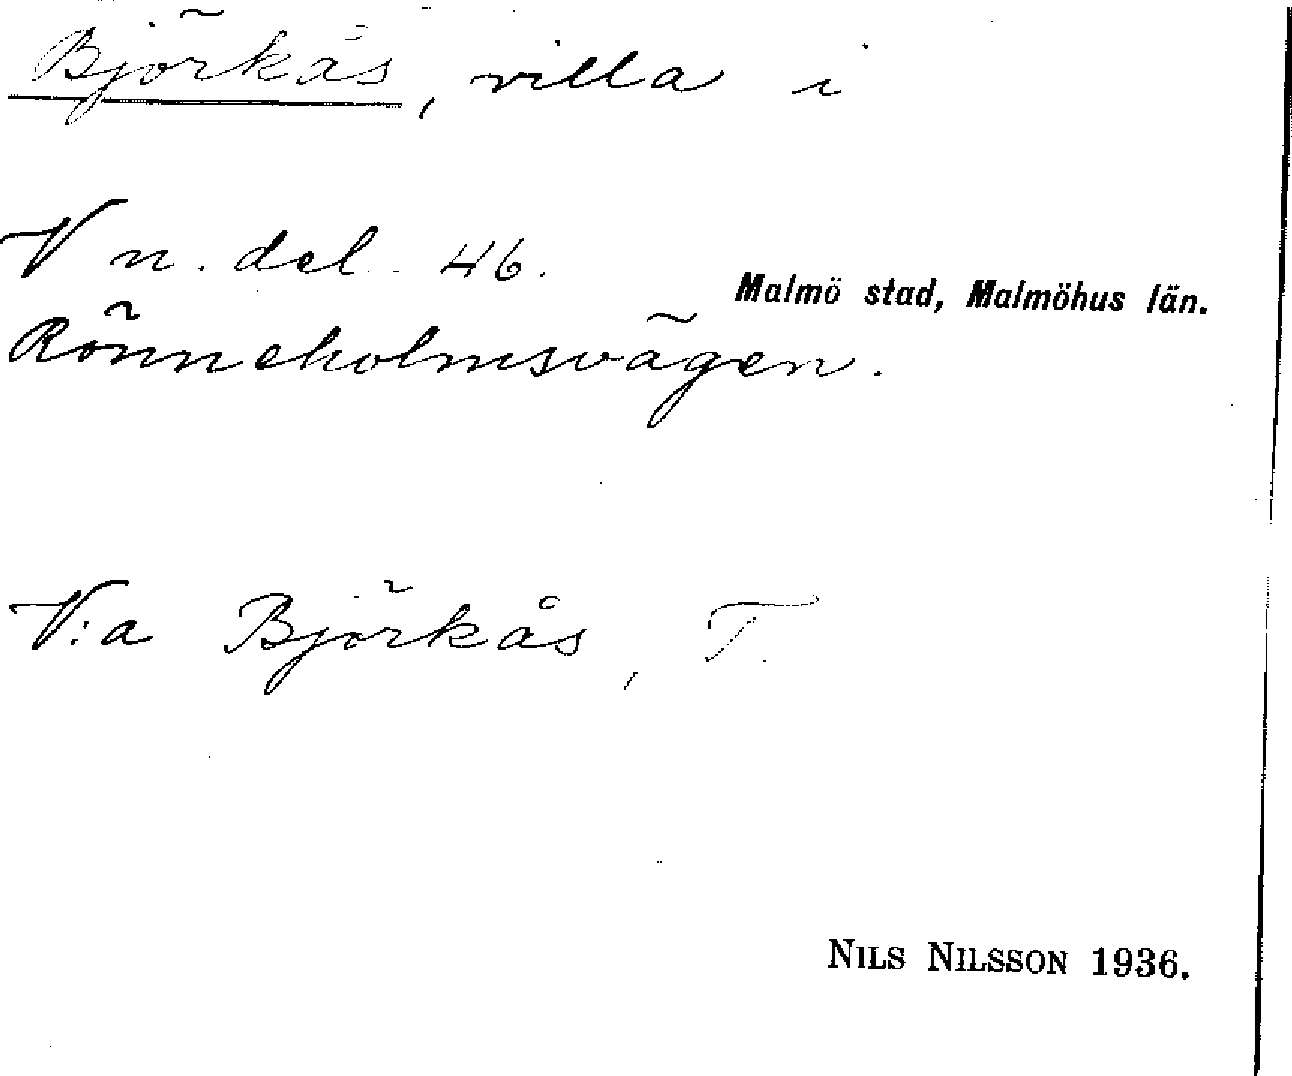 Björkås, villa i
V n. del. 46.
Malmö stad, Malmöhus län.
Rönneholmsvägen.
V:a Björkås, T.
NILS NILSSON 1936.